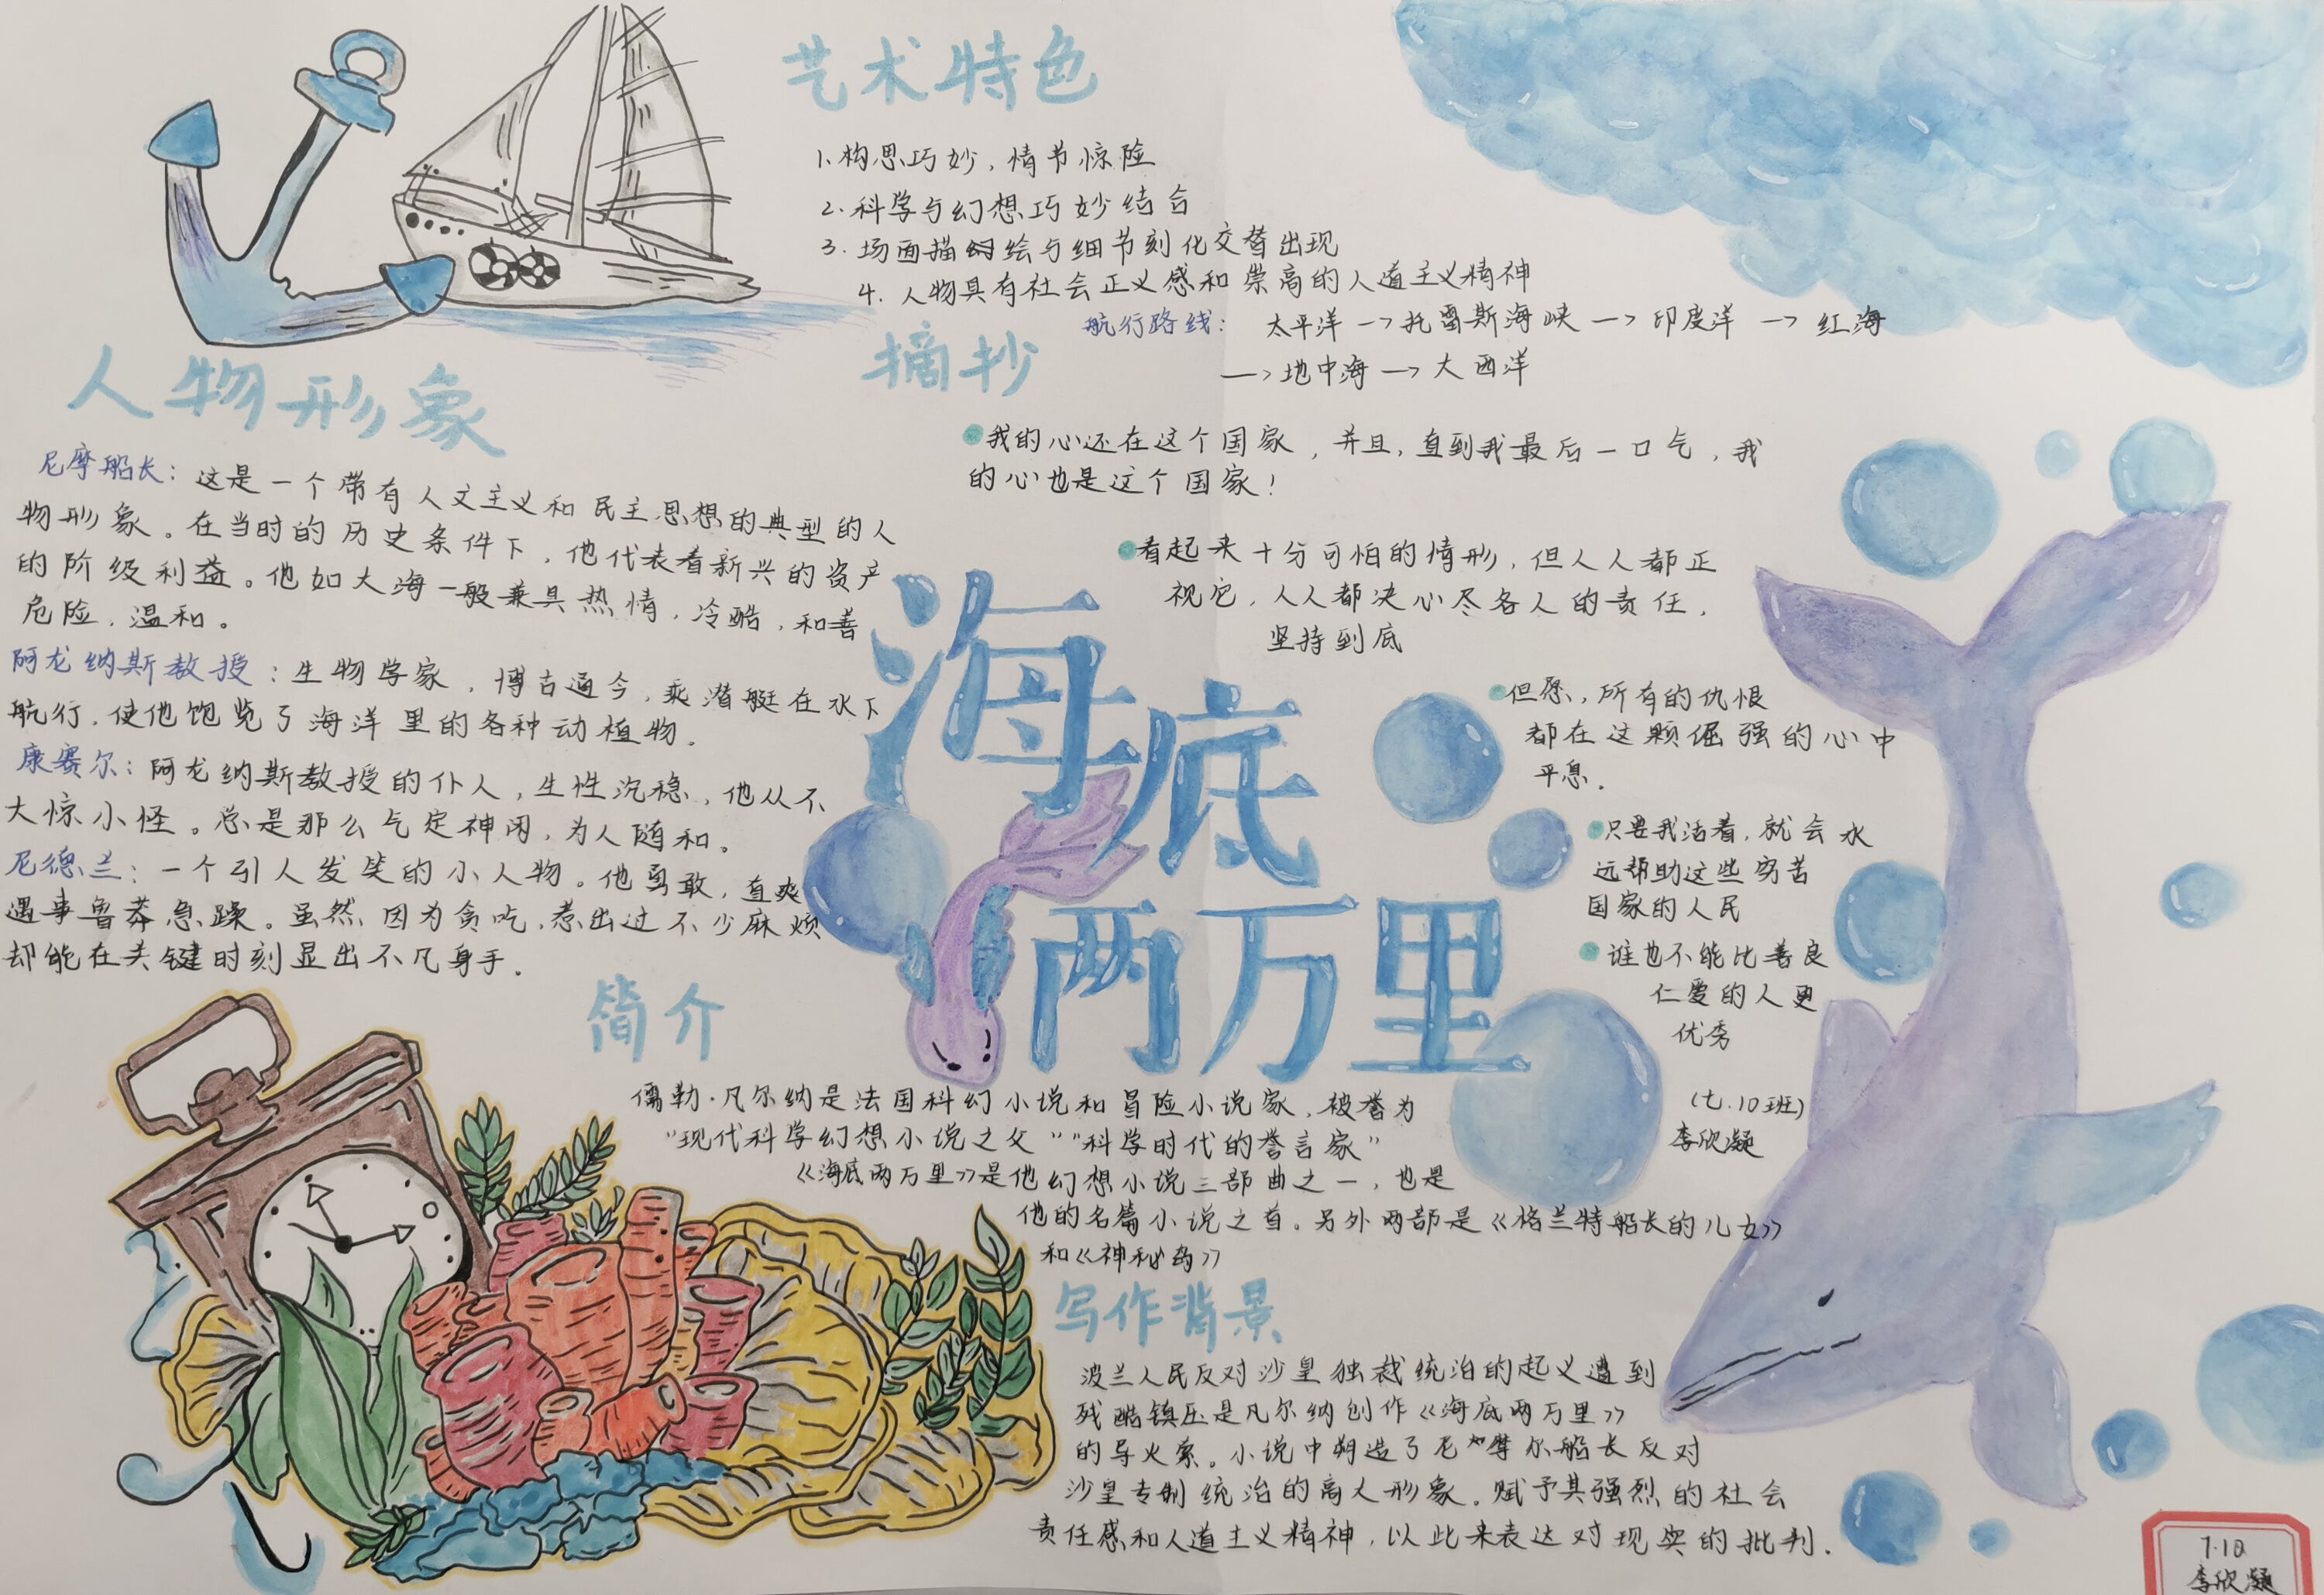 艺术特色
1.构思巧妙,情节惊险
2.科学与幻想巧妙结合
3.场面描绘与细节刻化交替出现
4.人物具有社会正义感和崇高的人道主义精神
航行路线: 太平洋→托雷斯海峡→印度洋→红海
→地中海→大西洋
人物形象
尼摩船长:这是一个带有人文主义和民主思想的典型的人
物形象。在当时的历史条件下,他代表着新兴的资产
的阶级利益。他如大海一般兼具热情,冷酷,和善
危险,温和。
阿龙纳斯教授:生物学家,博古通今,乘潜艇在水下
航行,使他饱览了海洋里的各种动植物.
康赛尔:阿龙纳斯教授的仆人,生性沉稳,他从不
大惊小怪。总是那么气定神闲,为人随和。
尼德兰:一个引人发笑的小人物。他勇敢,直爽
遇事鲁莽急躁。虽然因为贪吃,惹出过不少麻烦
却能在关键时刻显出不凡身手.
摘抄
我的心还在这个国家,并且,直到我最后一口气,我
的心也是这个国家!
看起来十分可怕的情形,但人人都正
视它,人人都决心尽各人的责任,
坚持到底
但愿,所有的仇恨
都在这颗倔强的心中
平息.
只要我活着,就会永
远帮助这些穷苦
国家的人民
谁也不能比善良
仁爱的人更
优秀
海底
两万里
(七.10班)
李欣凝
简介
儒勒·凡尔纳是法国科幻小说和冒险小说家,被誉为
"现代科学幻想小说之父""科学时代的誉言家"
《海底两万里》是他幻想小说三部曲之一,也是
他的名篇小说之首。另外两部是《格兰特船长的儿女》
和《神秘岛》
写作背景
波兰人民反对沙皇独裁统治的起义遭到
残酷镇压是凡尔纳创作《海底两万里》
的导火索。小说中塑造了尼摩尔船长反对
沙皇专制统治的高人形象。赋予其强烈的社会
责任感和人道主义精神,以此来表达对现实的批判.
7.10
李欣凝